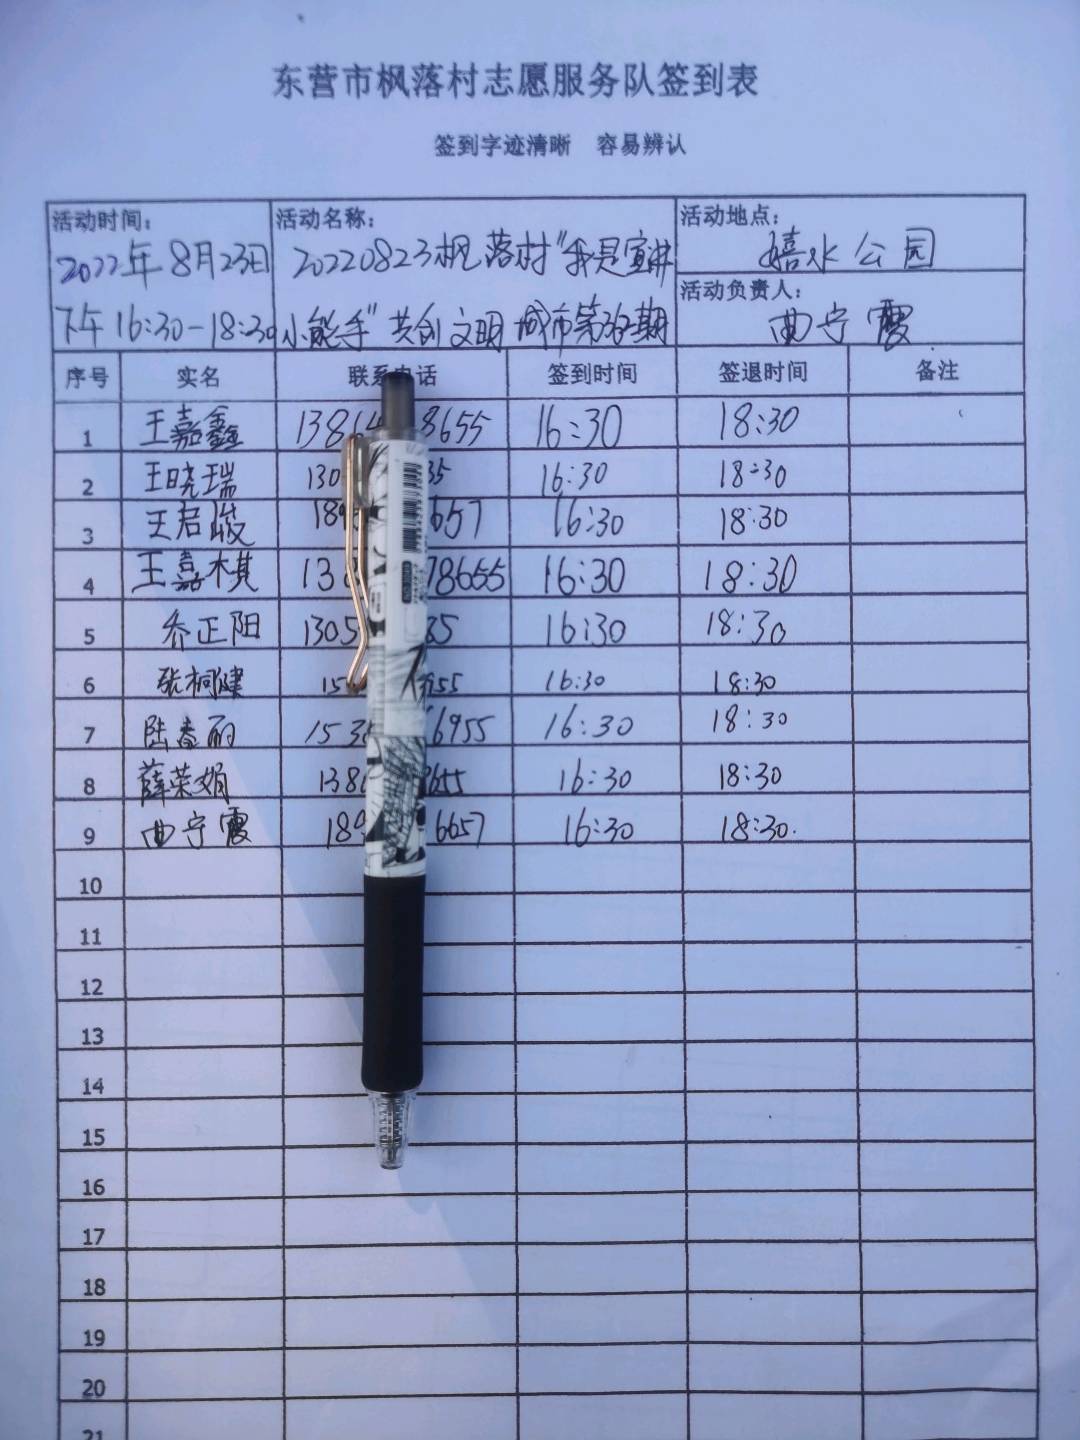 东营市枫落村志愿服务队签到表
签到字迹清晰 容易辨认
活动时间: 活动名称: 活动地点:
2022年8月23日 20220823枫落村"我是宣讲 嬉水公园
下午16:30-18:30 小能手"共创文明城市第 期 活动负责人:
曲宁霞
序号 实名 联系 话 签到时间 签退时间 备注
1 王嘉鑫 1386 8655 16:30 18:30
2 王晓瑞 130 35 16:30 18:30
3 王君峻 189 657 16:30 18:30
4 王嘉棋 13 78655 16:30 18:30
5 乔正阳 1305 35 16:30 18:30
6 张桐健 15 955 16:30 18:30
7 陆春丽 153 6955 16:30 18:30
8 薛荣娟 138 655 16:30 18:30
9 曲宁霞 189 6657 16:30 18:30.
10
11
12
13
14
15
16
17
18
19
20
21